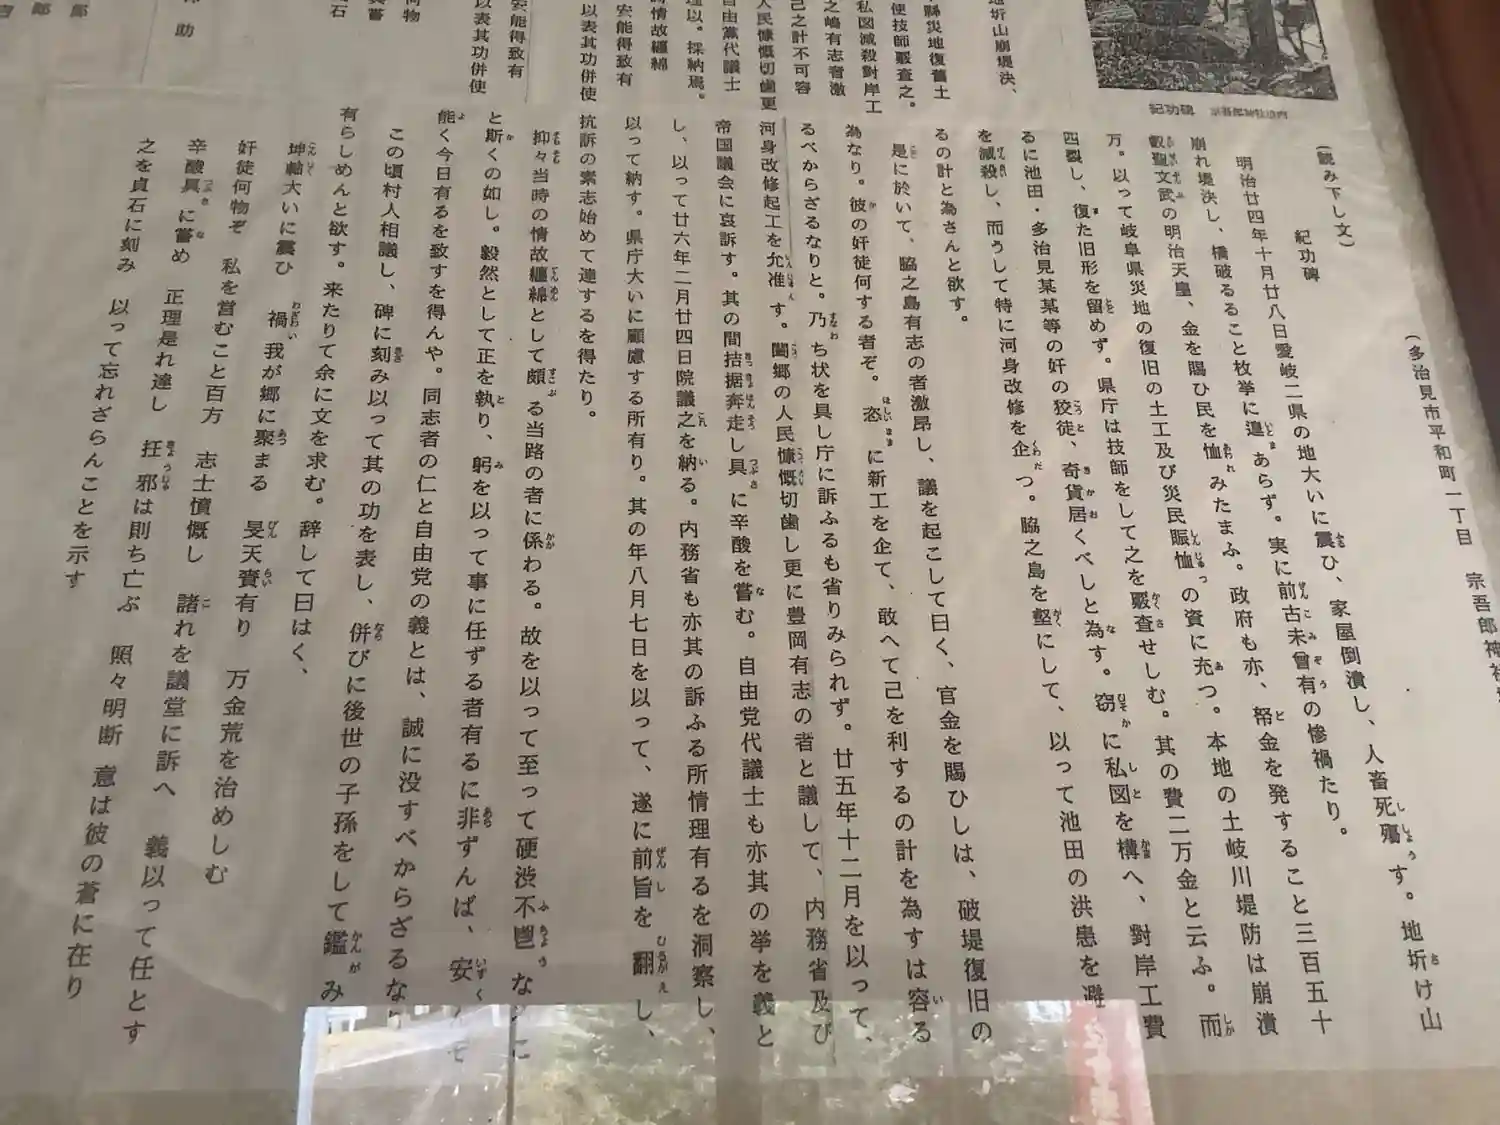 地圻山崩堤決、
縣災地復舊土
使技師覈査之。
私図減殺對岸工
之嶋有志者激
己之計不可容
人民慷慨切歯更
自由黨代議士
理以。採納焉。
時情故纏綿
安能得致有
以表其功併使
安能得致有
以表其功併使
荷物
具嘗
貞石
助
郎
郎
紀功碑
(多治見市平和町一丁目 宗吾郎神社
(読み下し文)
紀功碑
明治廿四年十月廿八日愛岐二県の地大いに震ひ、家屋倒潰し、人畜死殤す。地圻け山
崩れ堤決し、橋破るること枚挙に遑あらず。実に前古未曾有の惨禍たり。
叡聖文武の明治天皇、金を賜ひ民を恤みたまふ。政府も亦、帑金を発すること三百五十
万。以って岐阜県災地の復旧の土工及び災民賑恤の資に充つ。本地の土岐川堤防は崩潰
四裂し、復た旧形を留めず。県庁は技師をして之を覈査せしむ。其の費二万金と云ふ。而
るに池田・多治見某某等の奸の狡徒、奇貨居くべしと為す。窃に私図を構へ、對岸工費
を減殺し、而うして特に河身改修を企つ。脇之島を壑にして、以って池田の洪患を避
るの計と為さんと欲す。
是に於いて、脇之島有志の者激昂し、議を起こして曰く、官金を賜ひしは、破堤復旧の
為なり。彼の奸徒何する者ぞ。恣に新工を企て、敢へて己を利するの計を為すは容る
るべからざるなりと。乃ち状を具し庁に訴ふるも省りみられず。廿五年十二月を以って、
河身改修起工を允准す。闔郷の人民慷慨切歯し更に豊岡有志の者と議して、内務省及び
帝国議会に哀訴す。其の間拮据奔走し具に辛酸を嘗む。自由党代議士も亦其の挙を義と
し、以って廿六年二月廿四日院議之を納る。内務省も亦其の訴ふる所情理有るを洞察し、
以って納す。県庁大いに顧慮する所有り。其の年八月七日を以って、遂に前旨を翻えし、
抗訴の素志始めて達するを得たり。
抑々当時の情故纏綿として頗る当路の者に係わる。故を以って至って硬渋不鬯な
と斯くの如し。毅然として正を執り、躬を以って事に任ずる者有るに非ずんば、安くんぞ
能く今日有るを致すを得んや。同志者の仁と自由党の義とは、誠に没すべからざるな
この頃村人相議し、碑に刻み以って其の功を表し、併びに後世の子孫をして鑑み
有らしめんと欲す。来たりて余に文を求む。辞して曰はく、
坤軸大いに震ひ 禍我が郷に聚まる 旻天賚有り 万金荒を治めしむ
奸徒何物ぞ 私を営むこと百方 志士憤慨し 諸れを議堂に訴へ 義以って任とす
辛酸具に嘗め 正理是れ達し 抂邪は則ち亡ぶ 照々明断 意は彼の蒼に在り
之を貞石に刻み 以って忘れざらんことを示す